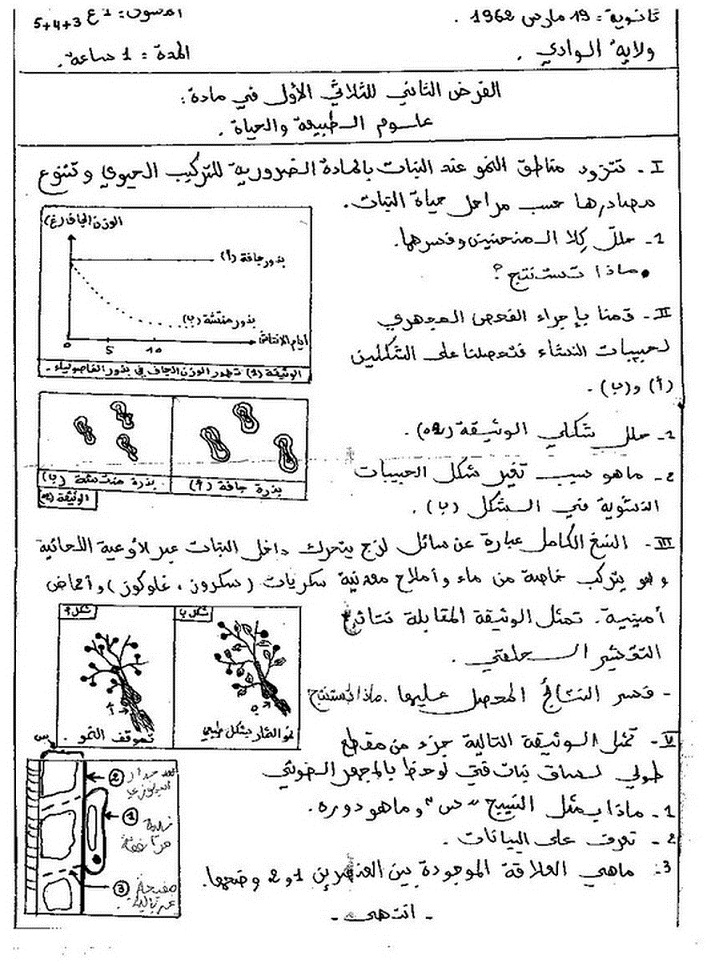 ثانوية : 19 مارس 1962 .
المستوى : 1 ع 3+4+5
ولاية الوادي .
المدة : 1 ساعة .
الفرض الثاني للثلاثي الأول في مادة :
علوم الطبيعة والحياة .
I - تتزود مناطق النمو عند النبات بالمادة الضرورية للتركيب الحيوي وتتنوع
مصادرها حسب مراحل حياة النبات .
1- حلل كلا المنحنيين وفسرهما.
• ماذا تستنتج ؟
الوزن الجاف (غ)
بذور جافة (أ)
بذور منتشة (ب)
0 5 10
أيام الانتاش
الوثيقة (1) تطور الوزن الجاف في بذور الفاصولياء .
II - قمنا بإجراء الفحص المجهري
لحبيبات النشاء فتحصلنا على الشكلين
(أ) و (ب) .
1- حلل شكلي الوثيقة (02) .
2- ماهو سبب تغير شكل الحبيبات
النشوية في الشكل (ب) .
بذرة جافة (أ)
بذرة منتشة (ب)
الوثيقة (02)
III - النسغ الكامل عبارة عن سائل لزج يتحرك داخل النبات عبر الأوعية اللحائية
وهو يتركب خاصة من ماء وأملاح معدنية سكريات (سكروز ، غلوكوز) وأحماض
أمينية . تمثل الوثيقة المقابلة نتائج
التقشير الحلقي .
- فسر النتائج المحصل عليها . ماذا تستنتج
شكل أ
شكل ب
تتوقف النمو .
نمو الثمار بشكل طبيعي
IV - تمثل الوثيقة التالية جزء من مقطع
طولي لساق نبات فتي لوحظ بالمجهر الضوئي
1- ماذا يمثل النسيج "س" وماهو دوره .
2- تعرف على البيانات .
3: ماهي العلاقة الموجودة بين العنصرين 1 و 2 وضحها .
س
② جدار
① خلية مرافقة
③ صفيحة غربالية
- انتهى -